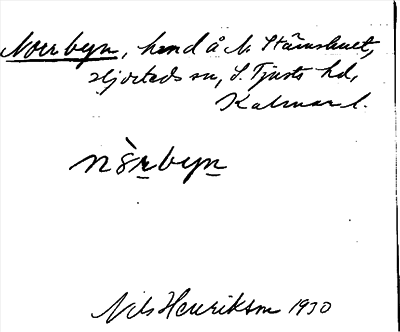 Norrbyn, hmd å N. Stämshult,
Hjorteds sn, S. Tjusts hd,
Kalmar l.
nòrbyn
Nils Henriksson 1930